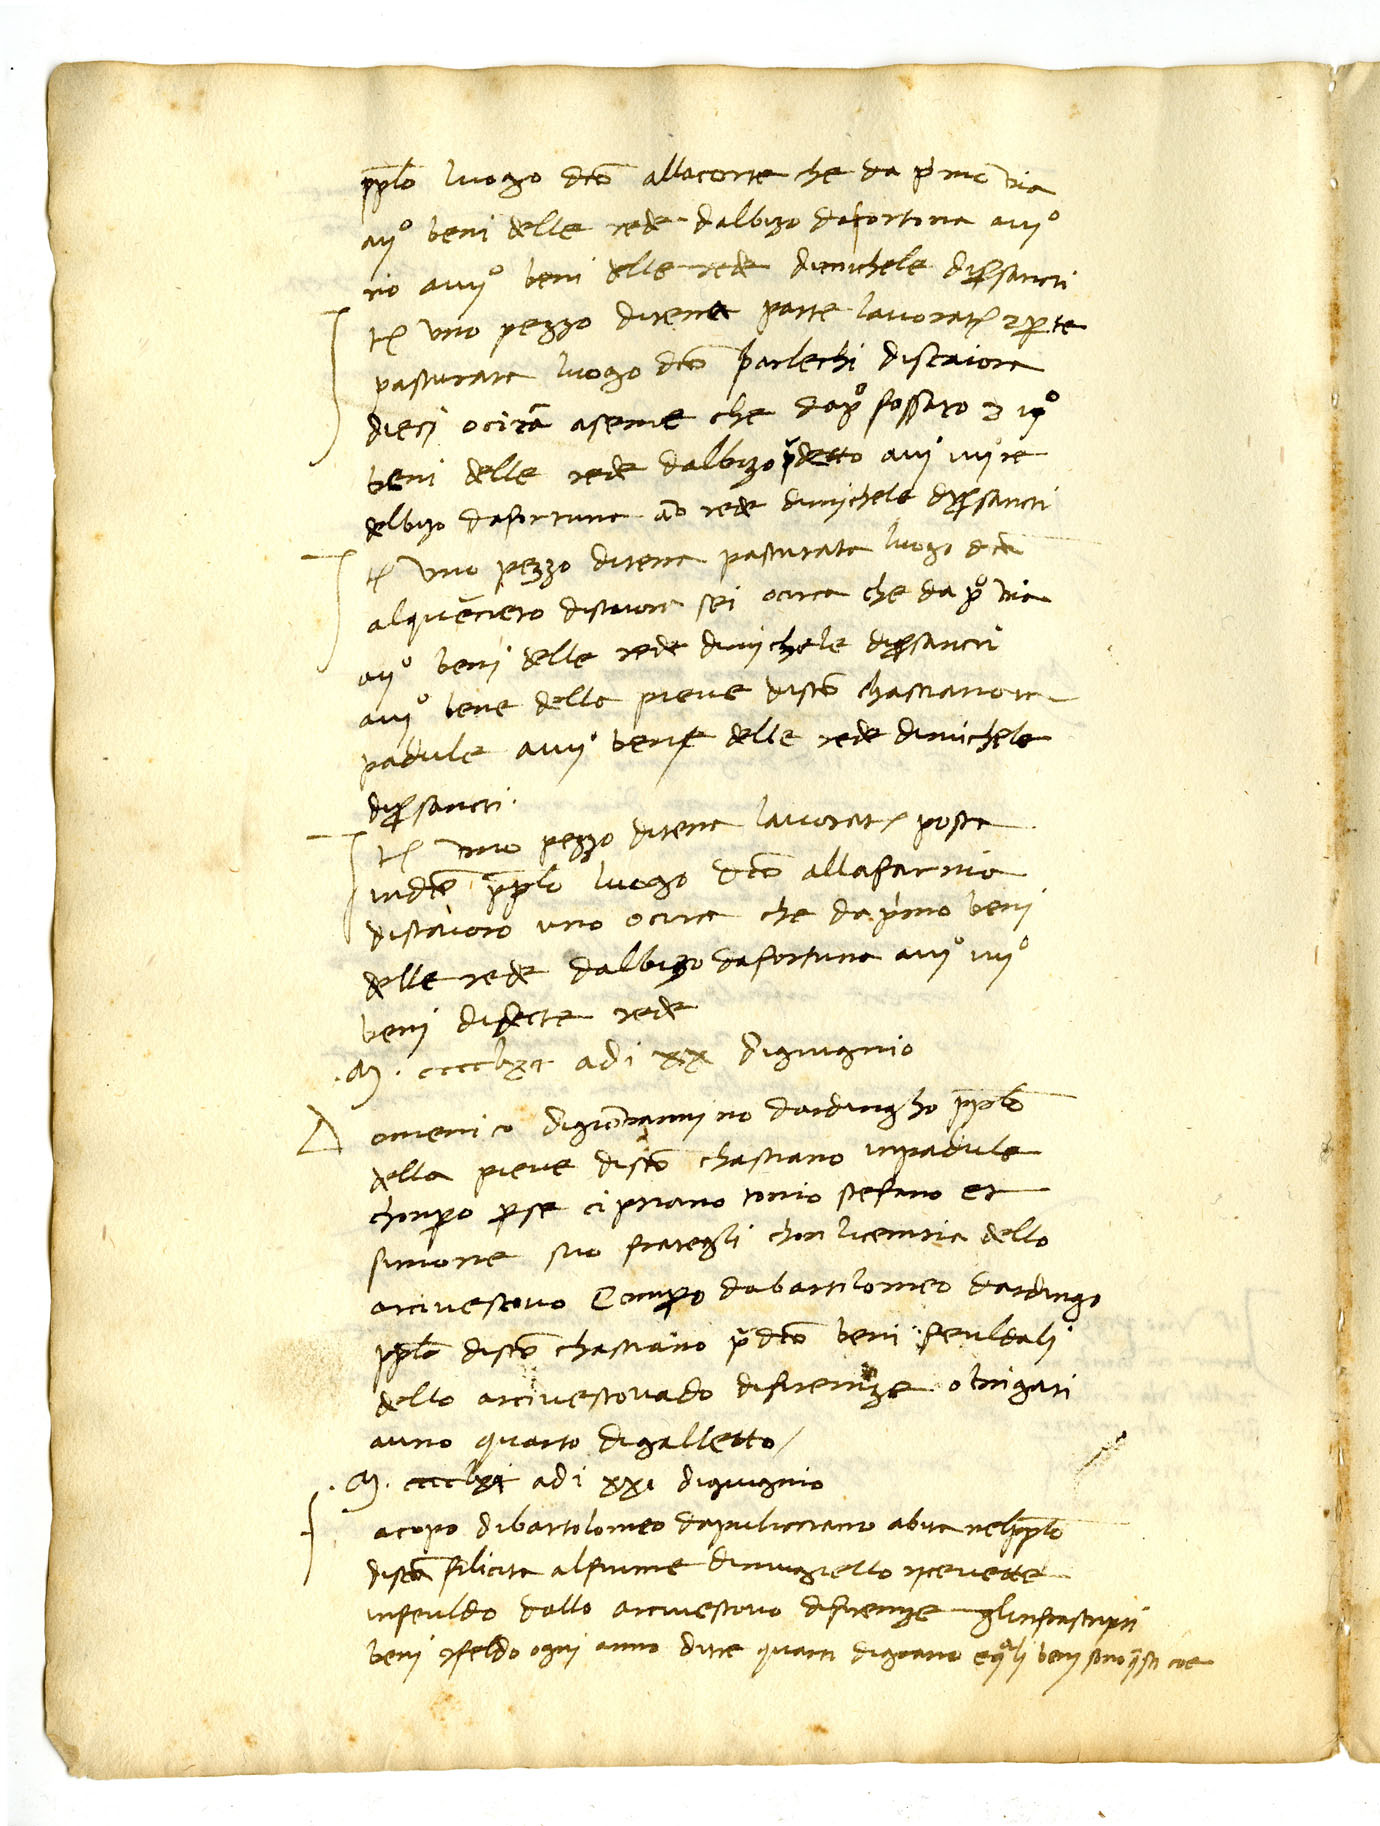 pplo luogo dco allacorte che da pimo via
a ijº beni delle rede dalbizo dafortuna a iijº
rio a iiijº beni delle rede dimichele dipsancti
Itē uno pezzo diterra parte lavorat 2 pte
pasturata luogo dco parlechi distaiora
dieci ocircā aseme che dapº fossato 3 ijº
beni delle rede dalbizo pdetto a iij iiij re
delbizo dafortuna aō rede dimichele dipsancti
Itē uno pezzo diterra pasturata luogo dcā
alquērceto distaiora sei ocirca che da pº via
a ijº beni delle rede dimichele dipsancti
a iijº bene della pieve discō chastiano in
padule a iiijº bene delle rede dimichele
dipsancti.
Itē uno pezzo diterra lavorat posta
indcō pplo luogo dcō allafarnia
distaioro uno ocirca che da pimo beni
delle rede dalbizo dafortuna a iijº iiijº
beni didecte rede
.M. cccclxi adi xx digiugnio
Domenico digiovannj no dardingho pplō
della pieve discō chastiano inpadule
chonpo pse cipriano tonio stefano et
simone suo frategli chon licentia dello
arcivescovo Compo dabartilomeo dardingo
pplō discō chastiano pdcō beni feuldali
dello arcivescovado difirenze obrigati
anno quarto digalletto/
.M. cccclxi adi xxi digiugnio
Jacopo dibartolomeo dapulicciano abita nelpplo
discā filicita alfiume dimugiello ricevette
infeuldo dallo arcivescovo difirenze glinfrascripti
beni rfeldo ogni anno ditre quarti digrano equali beni sono questi cioe